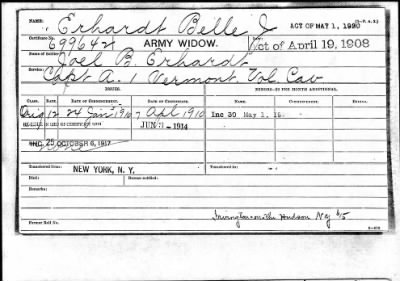 (3-P.A.2.)
NAME: Erhardt Belle J ACT OF MAY 1, 1920
Certificate No. 699642 ARMY WIDOW. Act of April 19, 1908
Name of Soldier: Joel B. Erhardt
Service: Capt A. 1 Vermont Vol Cav
ISSUES.
CLASS. RATE. DATE OF COMMENCEMENT. DATE OF CERTIFICATE.
Orig 12 24 Jan 1910 7 Apl 1910 Inc 30 May 1. 16.
JUN 1914
INC 25 OCTOBER 6, 1917
Transferred from NEW YORK, N. Y. Transferred to
Died: Bureau notified:
Remarks:
Irvington-on-the Hudson N Y
Former Roll No.